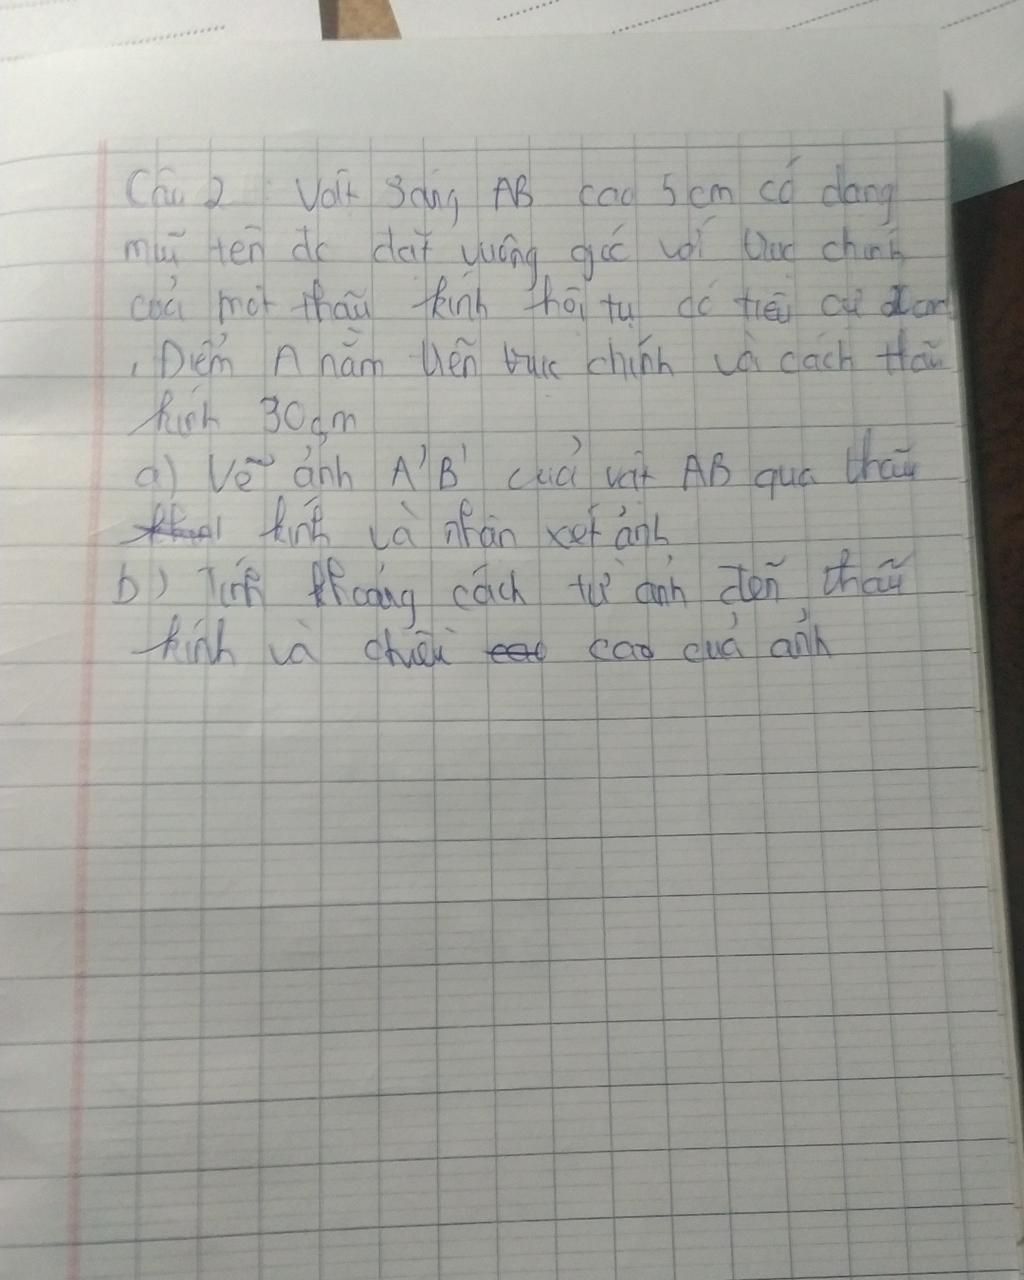 Câu 2 Vật sáng AB cao 5 cm có dạng
mũi tên đc đặt vuông góc với trục chính
của một thấu kính hội tụ có tiêu cự
, Điểm A nằm trên trục chính và cách thấu
kính 30cm
a) Vẽ ảnh A'B' của vật AB qua thấu
kính và nhận xét ảnh
b) Tính khoảng cách từ ảnh đến thấu
kính và chiều cao của ảnh